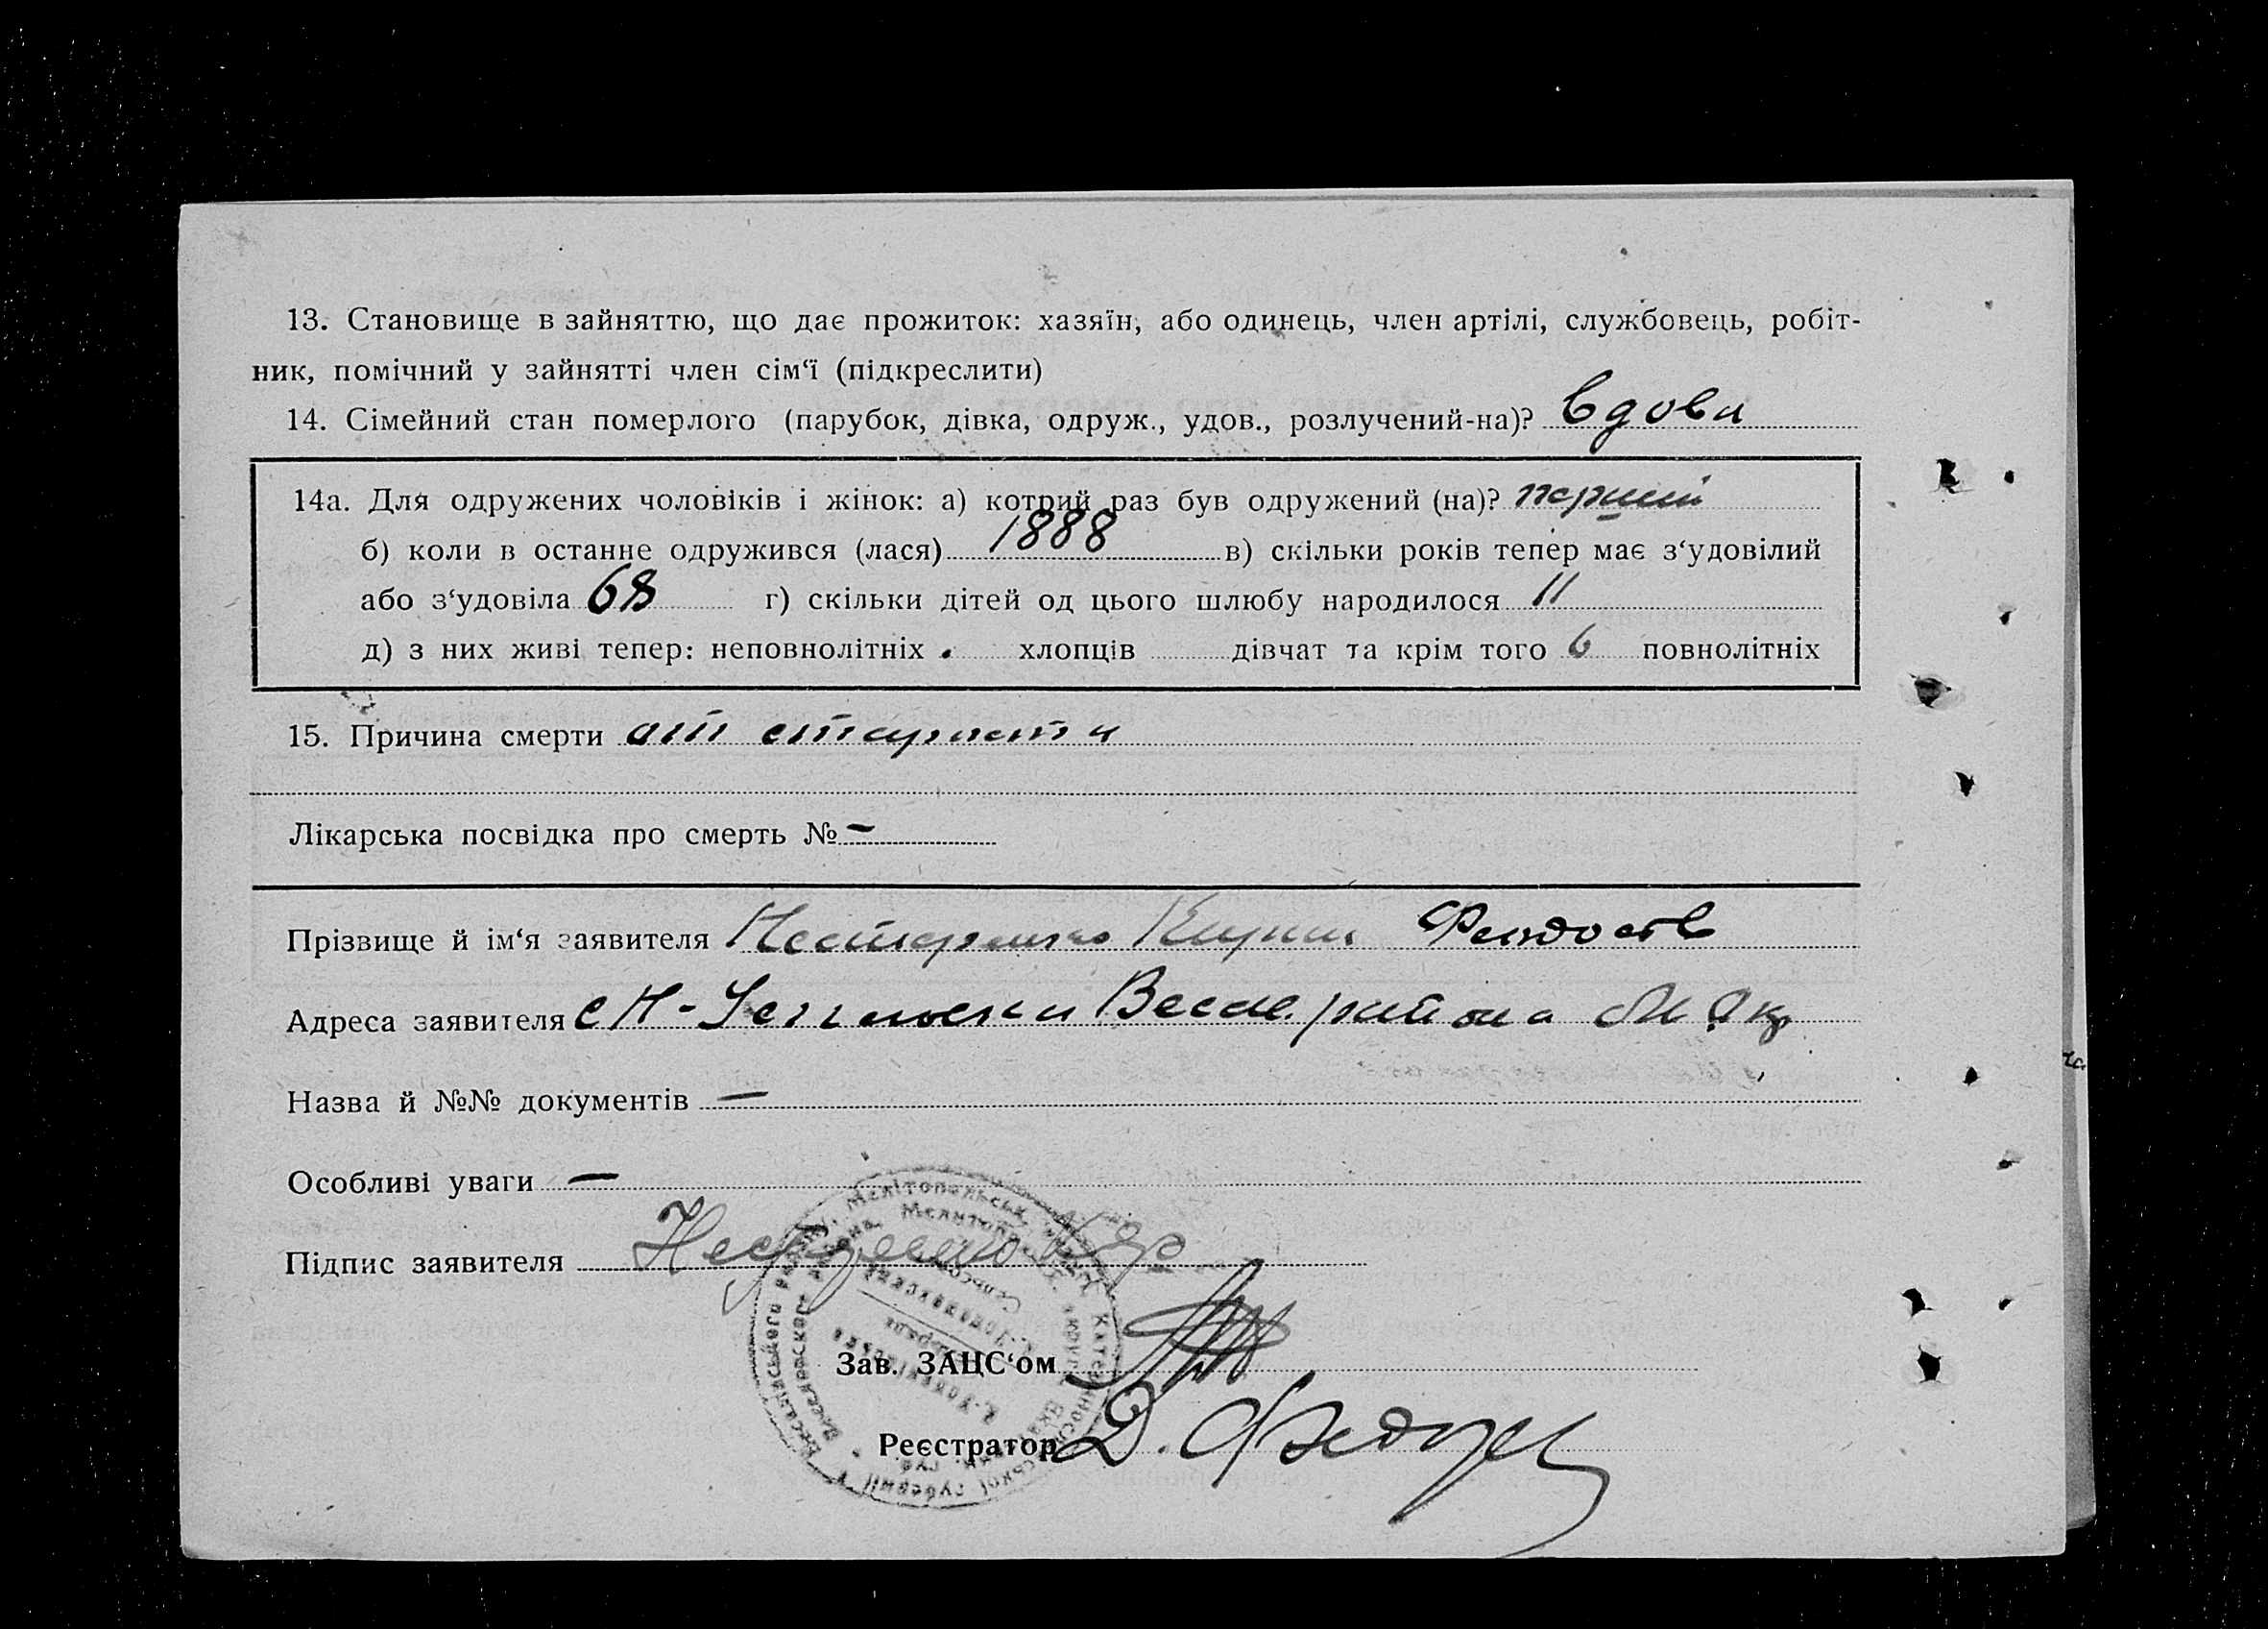 13. Становище в зайняттю, що дає прожиток: хазяїн, або одинець, член артілі, службовець, робіт-
ник, помічний у зайнятті член сім‘ї (підкреслити)
14. Сімейний стан померлого (парубок, дівка, одруж., удов., розлучений-на)? вдова
14а. Для одружених чоловіків і жінок: а) котрий раз був одружений (на)? перший
б) коли в останнє одружився (лася) 1888 в) скільки років тепер має з‘удовілий
або з‘удовіла 68 г) скільки дітей од цього шлюбу народилося 11
д) з них живі тепер: неповнолітніх хлопців дівчат та крім того 6 повнолітніх
15. Причина смерти от старости
Лікарська посвідка про смерть № –
Прізвище й ім‘я заявителя Нестеренко
Адреса заявителя с Н- района
Назва й №№ документів —
Особливі уваги —
Підпис заявителя
Зав. ЗАЦС‘ом
Реєстратор Д.